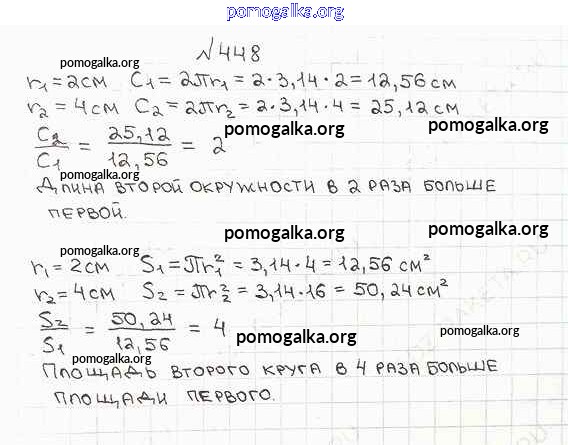 pomogalka.org
№448
pomogalka.org
r₁=2см C₁=2πr₁=2·3,14·2=12,56см
pomogalka.org
r₂=4см C₂=2πr₂=2·3,14·4=25,12см
pomogalka.org pomogalka.org
C₂/C₁ = 25,12/12,56 = 2
pomogalka.org
ДЛИНА ВТОРОЙ ОКРУЖНОСТИ В 2 РАЗА БОЛЬШЕ
ПЕРВОЙ.
pomogalka.org pomogalka.org
pomogalka.org
r₁=2см S₁=πr₁²=3,14·4=12,56см²
pomogalka.org
r₂=4см S₂=πr₂²=3,14·16=50,24см²
S₂/S₁ = 50,24/12,56 = 4
pomogalka.org pomogalka.org
pomogalka.org
ПЛОЩАДЬ ВТОРОГО КРУГА В 4 РАЗА БОЛЬШЕ
ПЛОЩАДИ ПЕРВОГО.